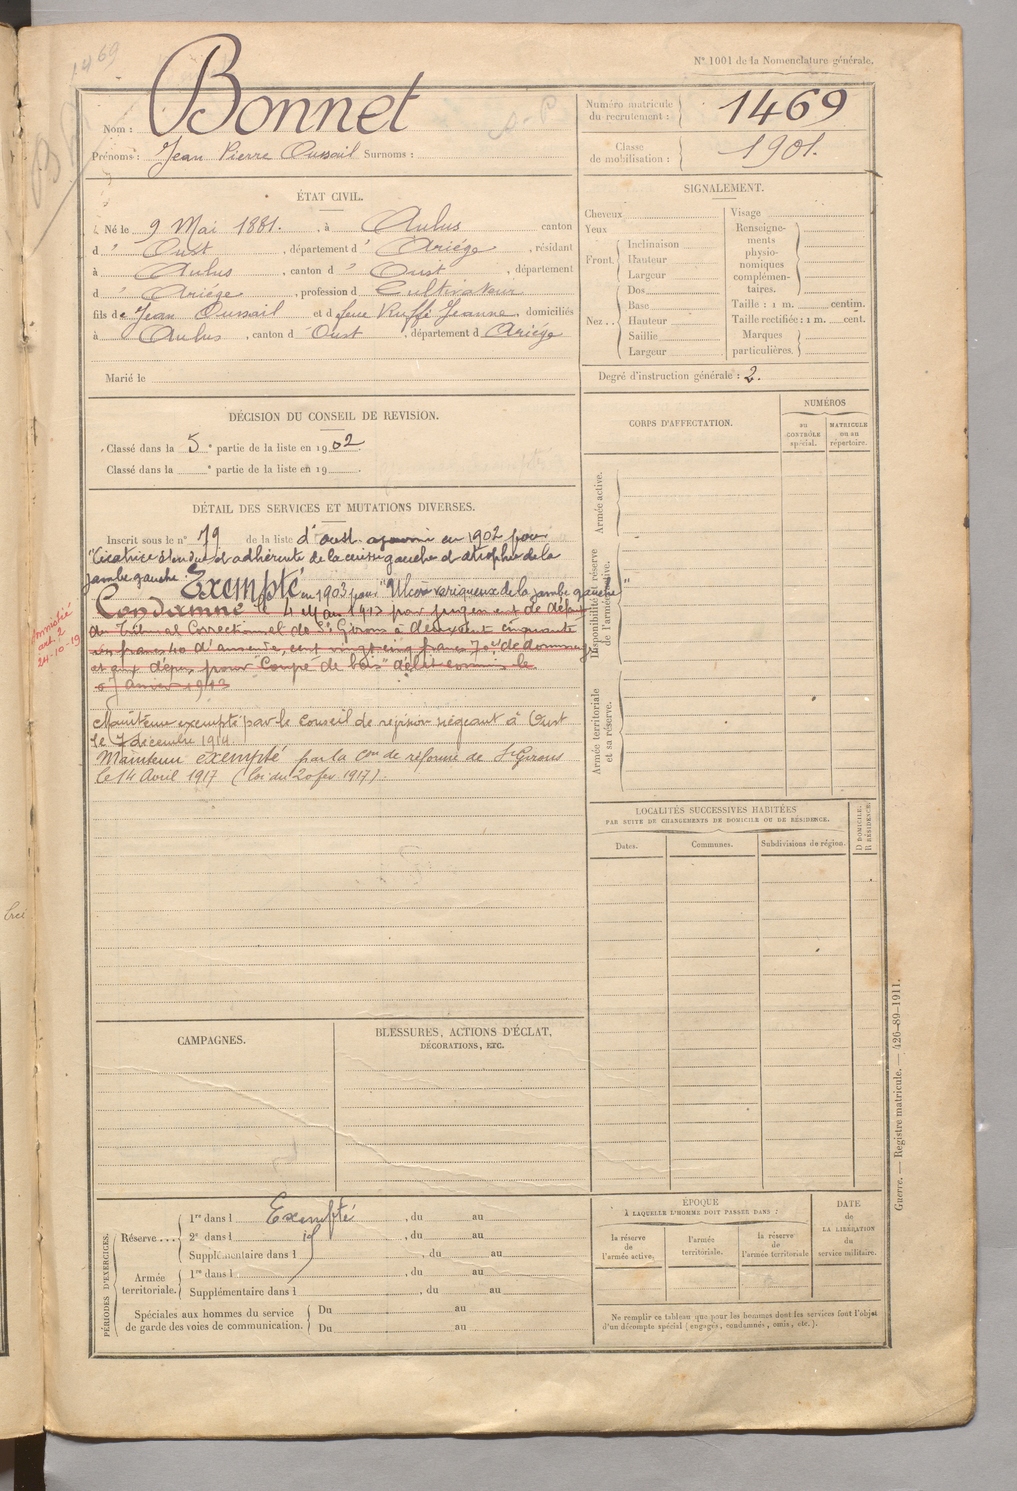 1469
N° 1001 de la Nomenclature générale.
Nom : Bonnet
Prénoms : Jean Pierre Oussail Surnoms :
Numéro matricule du recrutement : 1469
Classe de mobilisation : 1901.
ÉTAT CIVIL.
Né le 9 Mai 1881. , à Aulus canton
d' Oust , département d' Ariége , résidant
à Aulus , canton d' Oust , département
d' Ariége , profession d Cultivateur
fils de Jean Oussail et d feue Ruffé Jeanne , domiciliés
à Aulus , canton d' Oust , département d Ariége
Marié le
SIGNALEMENT.
Cheveux
Yeux
Front.
Inclinaison
Hauteur
Largeur
Nez..
Dos
Base
Hauteur
Saillie
Largeur
Visage
Renseignements physionomiques complémentaires.
Taille : 1 m. centim.
Taille rectifiée : 1 m. cent.
Marques particulières.
Degré d'instruction générale : 2.
DÉCISION DU CONSEIL DE REVISION.
Classé dans la 5e partie de la liste en 1902
Classé dans la e partie de la liste en 19
DÉTAIL DES SERVICES ET MUTATIONS DIVERSES.
Inscrit sous le n° 79 de la liste d'oust. ajourné en 1902 pour
"Cicatrice étendue et adhérente de la cuisse gauche et atrophie de la
jambe gauche". Exempté en 1903 pour "Ulcère variqueux de la jambe gauche"
Condamné le 4 Mars 1913 par jugement de défaut
du Tribunal Correctionnel de St Girons à deux cent cinquante
six francs 40 d'amende, cent vingt cinq francs 70 de dommages
et aux dépens pour "Coupe de bois" délit commis le
Janvier 1913
Amnistié
art. 2
24-10-19
Maintenu exempté par le Conseil de révision siégeant à Oust
le 7 décembre 1914.
Maintenu exempté par la Con de réforme de St Girons
le 14 Avril 1917 (loi du 20 fev. 1917).
CORPS D'AFFECTATION.
NUMÉROS
au CONTRÔLE spécial.
MATRICULE ou au répertoire.
Armée active.
Disponibilité et réserve de l'armée active.
Armée territoriale et sa réserve.
LOCALITÉS SUCCESSIVES HABITÉES
PAR SUITE DE CHANGEMENTS DE DOMICILE OU DE RÉSIDENCE.
Dates.
Communes.
Subdivisions de région.
D DOMICILE.
R RÉSIDENCE.
CAMPAGNES.
BLESSURES, ACTIONS D'ÉCLAT,
DÉCORATIONS, ETC.
PÉRIODES D'EXERCICES.
Réserve...
1re dans l Exempté , du au
2e dans l , du au
Supplémentaire dans l , du au
Armée territoriale.
1re dans l , du au
Supplémentaire dans l , du au
Spéciales aux hommes du service
de garde des voies de communication.
Du au
Du au
ÉPOQUE
À LAQUELLE L'HOMME DOIT PASSER DANS :
la réserve de l'armée active.
l'armée territoriale.
la réserve de l'armée territoriale
DATE de LA LIBÉRATION du service militaire.
Ne remplir ce tableau que pour les hommes dont les services font l'objet
d'un décompte spécial (engagés, condamnés, omis, etc.).
Guerre. — Registre matricule. — 426-89-1911.